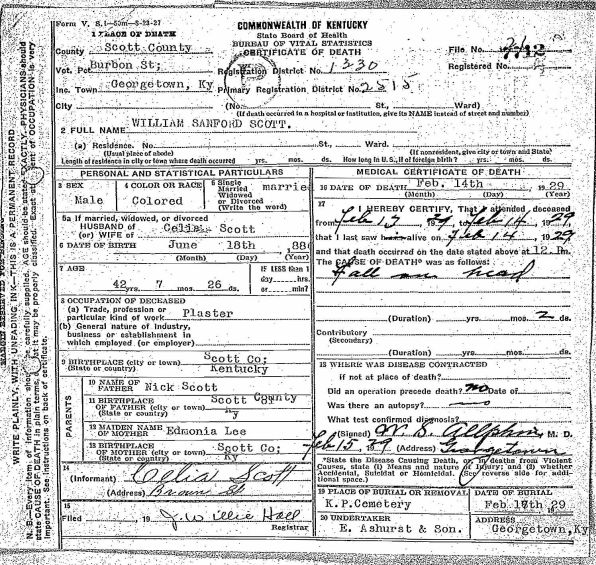 Form V. S. 1—50m—6-23-27
COMMONWEALTH OF KENTUCKY
State Board of Health
BUREAU OF VITAL STATISTICS
CERTIFICATE OF DEATH
1 PLACE OF DEATH
County Scott County
Vot. Pct. Burbon St;
Inc. Town Georgetown, Ky
City
Registration District No. 1330
Primary Registration District No. 2515
File No.
Registered No.
(No. St., Ward)
(If death occurred in a hospital or institution, give its NAME instead of street and number)
2 FULL NAME WILLIAM SANFORD SCOTT.
(a) Residence. No. St., Ward.
(Usual place of abode) (If nonresident, give city or town and State)
Length of residence in city or town where death occurred yrs. mos. ds. How long in U. S., if of foreign birth? yrs. mos. ds.
PERSONAL AND STATISTICAL PARTICULARS
3 SEX
Male
4 COLOR OR RACE
Colored
5 Single
Married
Widowed
or Divorced
(Write the word)
married
5a If married, widowed, or divorced
HUSBAND of
(or) WIFE of
Scott
6 DATE OF BIRTH June 18th 188
(Month) (Day) (Year)
7 AGE
42 yrs. 7 mos. 26 ds.
IF LESS than 1
day hrs.
or min?
8 OCCUPATION OF DECEASED
(a) Trade, profession or
particular kind of work Plaster
(b) General nature of industry,
business or establishment in
which employed (or employer)
9 BIRTHPLACE (city or town) Scott Co;
(State or country) Kentucky
PARENTS
10 NAME OF
FATHER Nick Scott
11 BIRTHPLACE
OF FATHER (city or town) Scott County
(State or country) Ky
12 MAIDEN NAME
OF MOTHER Edmonia Lee
13 BIRTHPLACE
OF MOTHER (city or town) Scott Co;
(State or country) Ky
14
(Informant) Celia Scott
(Address) Brown St
15
Filed 19 J. Willie Hall
Registrar
MEDICAL CERTIFICATE OF DEATH
16 DATE OF DEATH Feb. 14th 1929
(Month) (Day) (Year)
17 I HEREBY CERTIFY, That I attended deceased
from Feb 13 1929, to Feb 14, 1929
that I last saw him alive on Feb 14, 1929
and that death occurred on the date stated above at 12. Pm.
The CAUSE OF DEATH* was as follows:
Fall on head
(Duration) yrs. mos. 2 ds.
Contributory
(Secondary)
(Duration) yrs. mos. ds.
18 WHERE WAS DISEASE CONTRACTED
if not at place of death?
Did an operation precede death? no Date of
Was there an autopsy?
What test confirmed diagnosis?
(Signed) W. S. Allphin, M. D.
Feb 15, 1929 (Address) Georgetown
*State the Disease Causing Death, or, in deaths from Violent
Causes, state (1) Means and nature of Injury; and (2) whether
Accidental, Suicidal or Homicidal. (See reverse side for addi-
tional space.)
19 PLACE OF BURIAL OR REMOVAL
K. P. Cemetery
DATE OF BURIAL
Feb. 17th 29
20 UNDERTAKER
E. Ashurst & Son.
ADDRESS
Georgetown, Ky
WRITE PLAINLY, WITH UNFADING INK—THIS IS A PERMANENT RECORD
N. B.—Every item of information should be carefully supplied. AGE should be stated EXACTLY. PHYSICIANS should
state CAUSE OF DEATH in plain terms, so that it may be properly classified. Exact statement of OCCUPATION is very
important. See instructions on back of certificate.